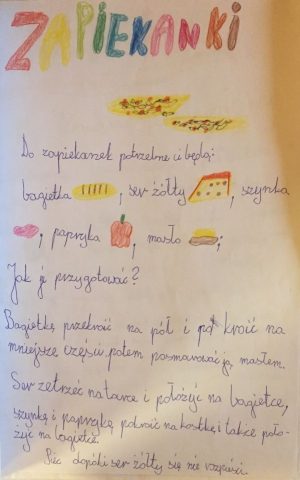 ZAPIEKANKI
Do zapiekanek potrzebne ci będą:
bagietka, ser żółty, szynka
, papryka, masło;
Jak je przygotować?
Bagietkę przekroić na pół i pokroić na
mniejsze części potem posmarować ją masłem.
Ser zetrzeć na tarce i położyć na bagietce,
szynkę i paprykę pokroić na kostkę i także poło-
żyć na bagietce.
Piec dopóki ser żółty się nie rozpuści.